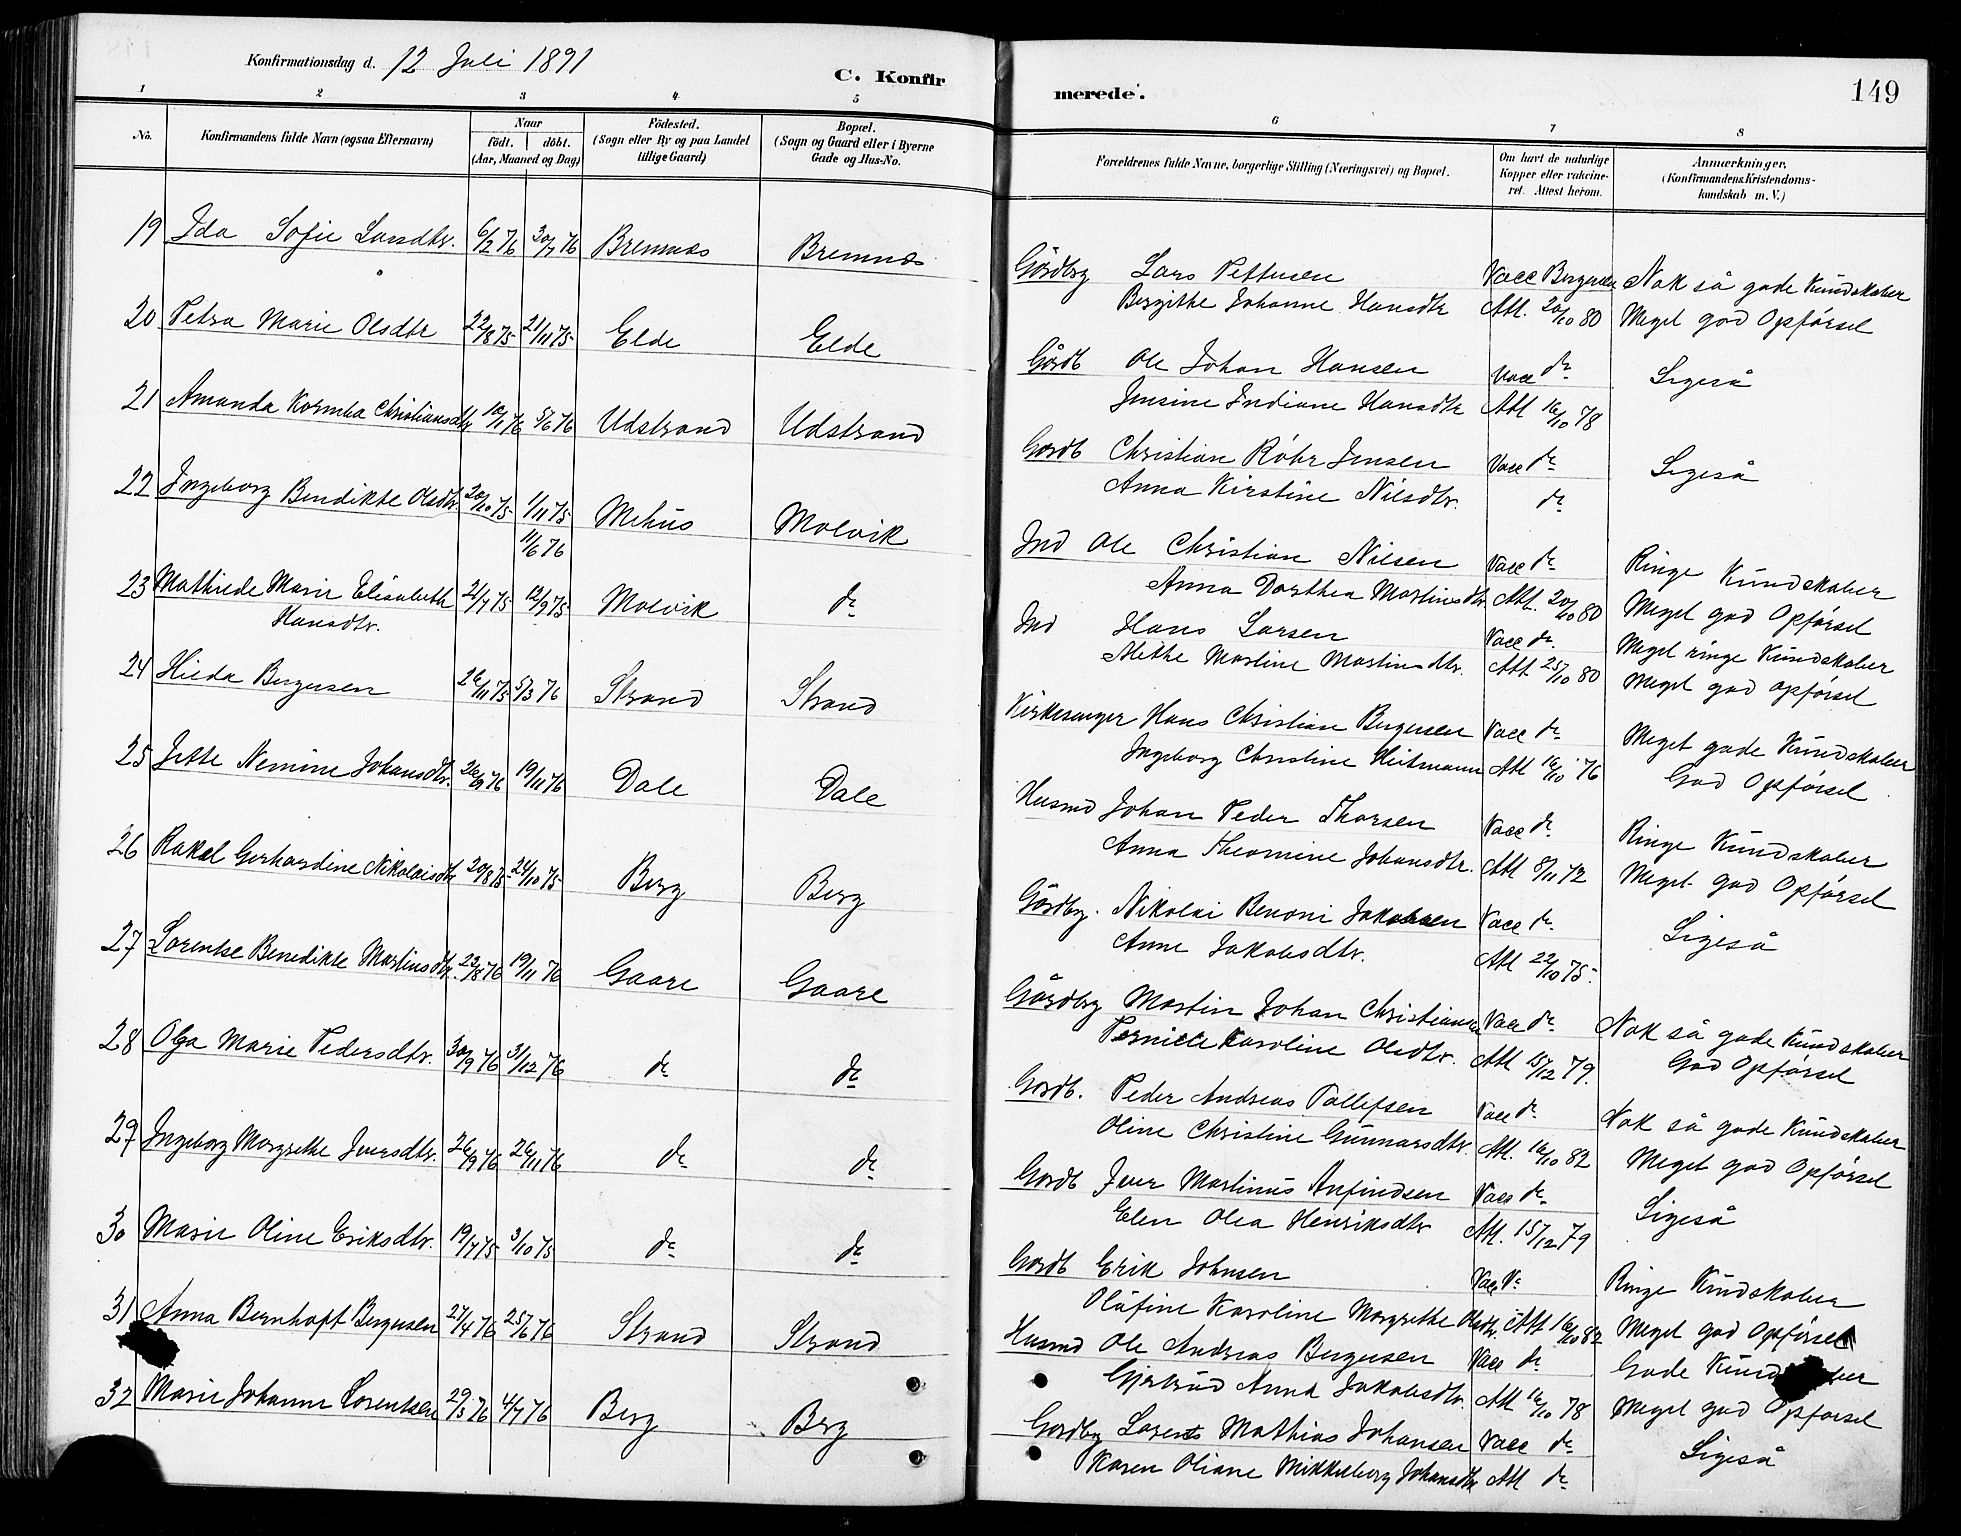 Konfirmationsdag d. 12 Juli 1891
C. Konfirmerede.
149
1 2 3 4 5 6 7 8
No. Konfirmandens fulde Navn (ogsaa Efternavn) Naar födt. döbt. (Aar, Maaned og Dag) Födested. (Sogn eller By og paa Landet tillige Gaard) Bopæl. (Sogn og Gaard eller i Byerne Gade og Hus-No. Forældrenes fulde Navne, borgerlige Stilling (Næringsvei) og Bopæl. Om havt de naturlige Kopper eller vakcineret. Attest herom. Anmærkninger. (Konfirmandens Kristendomskundskab m. V.)
19 Ida Sofie Larsdtr. 6/2 76 30/7 76 Bremnæs Bremnæs Gårdbrg Lars Pettersen Vacc Bergersen Nok så gode Kundskaber
Bergithe Johanne Hansdtr Att. 20/10 80 Meget god Opførsel
20 Petra Marie Olsdtr 22/8 75 21/11 75 Elde Elde Gårdb Ole Johan Hansen Vacc do Ligeså
Jensine Indiane Hansdtr Att 16/10 78
21 Amanda Kornelia Christiansdtr 10/1 76 5/6 76 Udstrand Udstrand Gardb Christian Röhr Jensen Vacc do Ligeså
Anna Kirstine Nilsdtr. do
22 Ingeborg Bendikte Olsdtr. 20/10 75 1/11 75 Mehus Molvik Ind Ole Christian Nilsen Vacc do Ringe Kundskaber
11/6 76 Anna Dorthea Martinsdtr Att. 20/10 80 Meget god Opførsel
23 Mathilde Marie Elisabeth 21/7 75 12/9 75 Molvik do Ind Hans Larsen Vacc do. Meget ringe Kundskaber
Hansdtr. Methe Martine Martinsdtr. Att 25/10 80 Meget god opførsel
24 Hilda Bergersen 26/11 75 5/3 76 Strand Strand Kirkesanger Hans Christian Bergersen Vacc do Meget gode Kundskaber
Ingeborg Christine Heitmann Att 16/10 76 God Opførsel
25 Jette Nemine Johansdtr. 26/9 76 19/11 76 Dale Dale Husmd Johan Peder Thorsen Vacc do Ringe Kundskaber
Anna Theomine Johansdtr. Att 8/11 72 Meget god Opførsel
26 Rakel Gerhardine Nikolaisdtr 20/8 75 24/10 75 Berg Berg Gårdbrg. Nikolai Benoni Jakobsen Vacc do Ligeså
Anne Jakobsdtr. Att 22/10 75.
27 Lorentse Benedikte Martinsdtr. 22/8 76 19/11 76 Gaare Gaare Gårdbrg Martin Johan Christiansen Vacc do Nok så gode Kundskaber
Pernille Karoline Olsdtr. Att 15/12 79. God Opførsel
28 Olga Marie Pedersdtr. 30/9 76 31/12 76 do do Gardb. Peder Andreas Tollefsen Vacc do Nok så gode Kundskaber
Oline Christine Gunnarsdtr. Att. 16/10 82 Meget god Opførsel
29 Ingeborg Margrethe Iversdtr. 26/9 76 26/11 76 do do Gardb Iver Martinus Anfindsen Vacc do Ligeså
Elen Olea Henriksdtr Att. 15/12 79
30 Marie Oline Eriksdtr. 19/7 75 3/10 75 do do Gardb Erik Johnsen Vacc do Ringe Kundskaber
Olufine Karoline Margrethe Olsdtr. Att 16/10 82 Meget god Opførsel
31 Anna Bernhoft Bergersen 27/4 76 25/6 76 Strand Strand Husmd Ole Andreas Bergersen Vacc do Gode Kundskaber
Gjertrud Anna Jakobsdtr. Att 16/10 78 Meget god Opførsel
32 Marie Johanne Lorentsen 29/5 76 4/7 76 Berg Berg Gårdbrg Lorents Mathias Johansen Vacc do Ligeså
Karen Oliane Mikkelborg Johansdtr Att do